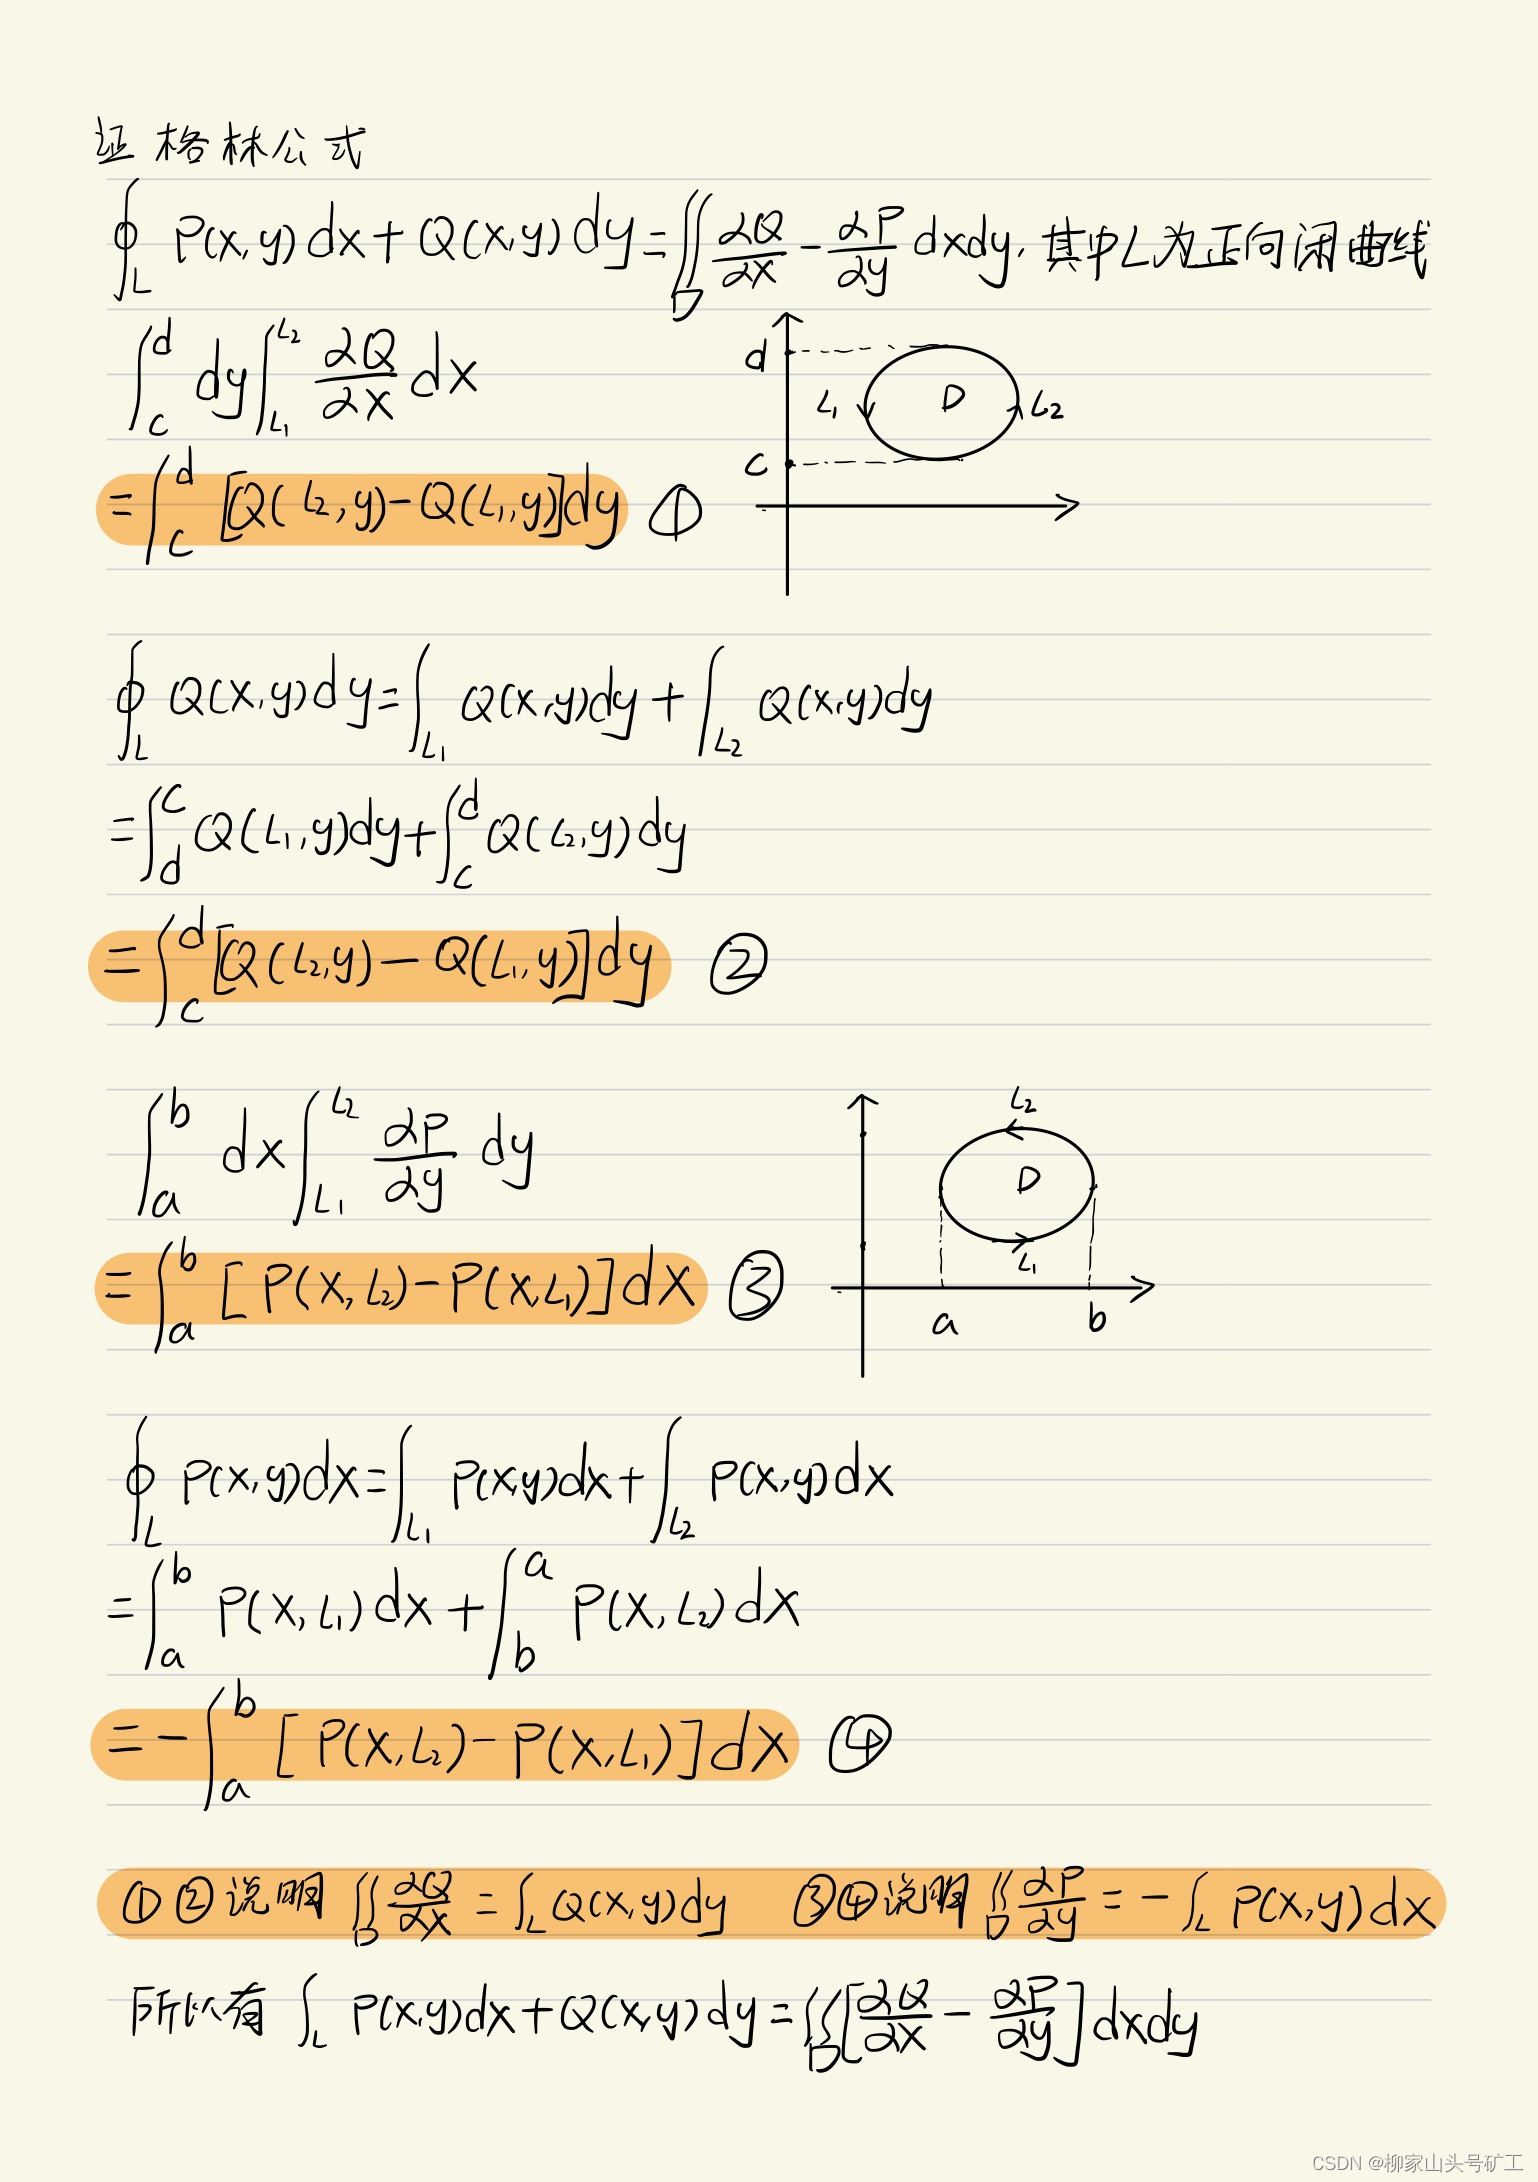 证格林公式
∮_L P(x,y)dx+Q(x,y)dy=∬_D ∂Q/∂x - ∂P/∂y dxdy, 其中L为正向闭曲线
∫_c^d dy∫_{L₁}^{L₂} ∂Q/∂x dx
d
L₁ D L₂
c
=∫_c^d [Q(L₂,y)-Q(L₁,y)]dy ①
∮_L Q(x,y)dy=∫_{L₁} Q(x,y)dy+∫_{L₂} Q(x,y)dy
=∫_d^c Q(L₁,y)dy+∫_c^d Q(L₂,y)dy
=∫_c^d [Q(L₂,y)-Q(L₁,y)]dy ②
∫_a^b dx∫_{L₁}^{L₂} ∂P/∂y dy
L₂
D
L₁
a b
=∫_a^b [P(x,L₂)-P(x,L₁)]dx ③
∮_L P(x,y)dx=∫_{L₁} P(x,y)dx+∫_{L₂} P(x,y)dx
=∫_a^b P(x,L₁)dx+∫_b^a P(x,L₂)dx
=-∫_a^b [P(x,L₂)-P(x,L₁)]dx ④
①②说明 ∬_D ∂Q/∂x = ∫_L Q(x,y)dy ③④说明 ∬_D ∂P/∂y = -∫_L P(x,y)dx
所以有 ∫_L P(x,y)dx+Q(x,y)dy=∬_D[∂Q/∂x - ∂P/∂y]dxdy
CSDN @柳家山头号矿工